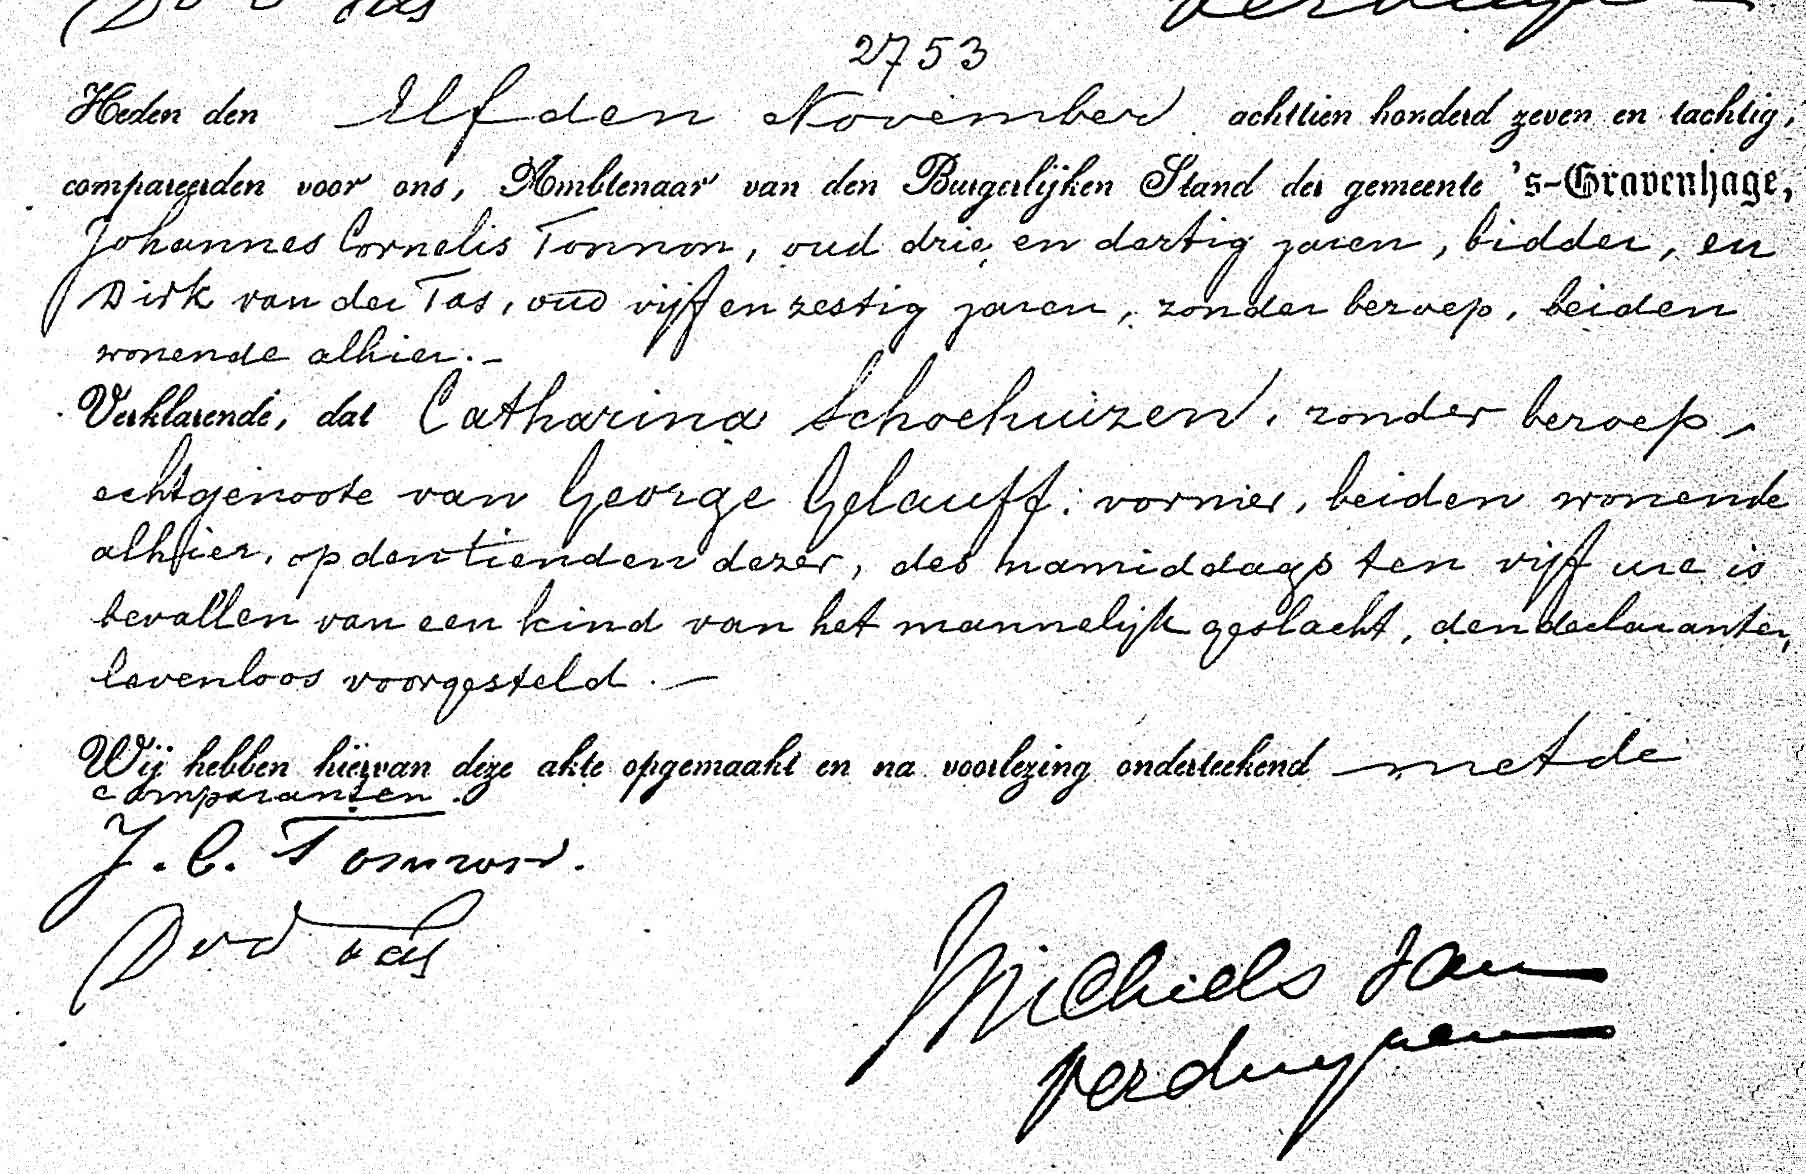 2753
Heden den Elfden November achttien honderd zeven en tachtig,
compareerden voor ons, Ambtenaar van den Burgerlijken Stand der gemeente 's-Gravenhage,
Johannes Cornelis Tonnon, oud drie en dertig jaren, bidder, en
Dirk van der Tas, oud vijf en zestig jaren, zonder beroep, beiden
wonende alhier.-
Verklarende, dat Catharina Schoehuizen, zonder beroep,
echtgenoote van George Gelauff: vormer, beiden wonende
alhier, op den tienden dezer, des namiddags ten vijf ure is
bevallen van een kind van het mannelijk geslacht, den declaranten,
levenloos voorgesteld.-
Wij hebben hiervan deze akte opgemaakt en na voorlezing onderteekend met de
comparanten.
J. C. Tonnon.
D v d Tas
Michiels van
Verduynen